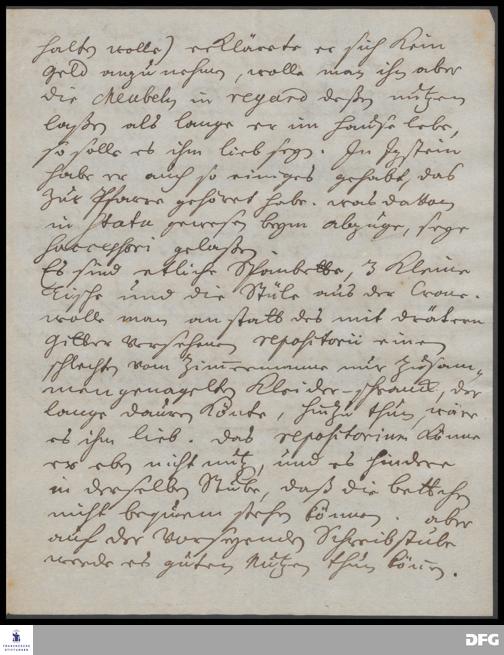 halten wolle) erklärete er sich kein
Geld anzunehmen, wolle man ihn aber
die Meubeln in regard deßen nutzen
laßen als lange er im Hauße lebe,
so solle es ihm lieb seyn. In Izstein
habe er auch so einiges gehabt, das
zur Pfarre gehöret habe. was davon
in statu gewesen beym abzuge, seye
Successori gelaßen.
Es sind etliche Spanbette, 3 kleine
Tische und die Stüle aus der Crone.
wolle man anstatt des mit dräternen
Gitter versehenen repositorii einen
schlechten vom Zimmermanne nur zusam-
mengenagelten Kleider-schranck, der
lange dauren könte, hinzu thun, wäre
es ihm lieb. das repositorium könne
er eben nicht nutzen, und es hindere
in derselben Stube, daß die bettchen
nicht bequem stehen können. aber
auf der Schreibstube
werde es guten Nutzen thun können.
FRANCKESCHE
STIFTUNGEN
DFG